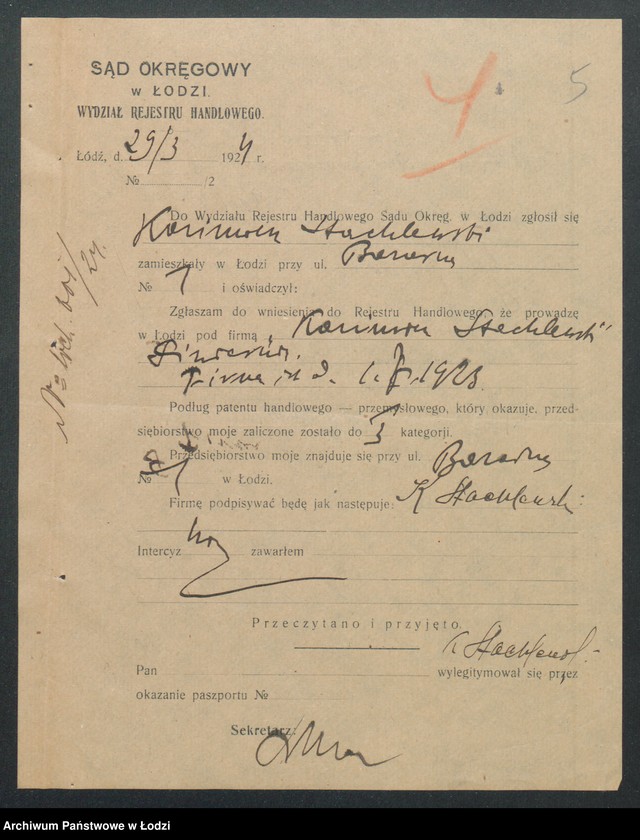 4 5
SĄD OKRĘGOWY
w ŁODZI.
WYDZIAŁ REJESTRU HANDLOWEGO.
Łódź, d. 29/3 1924 r.
№ /2
Do Wydziału Rejestru Handlowego Sądu Okręg. w Łodzi zgłosił się
Stachlewski
zamieszkały w Łodzi przy ul.
№ 1 i oświadczył:
Zgłaszam do wniesienia do Rejestru Handlowego, że prowadzę
w Łodzi pod firmą „ Stachlewski"
Firma istn. 1923.
Podług patentu handlowego — przemysłowego, który okazuje, przed-
siębiorstwo moje zaliczone zostało do kategorji.
Przedsiębiorstwo moje znajduje się przy ul.
№ w Łodzi.
Firmę podpisywać będę jak następuje: K Stachlewski
Intercyz zawarłem
Przeczytano i przyjęto.
K Stachlewski
Pan wylegitymował się przez
okazanie paszportu №
Sekretarz:
Archiwum Państwowe w Łodzi